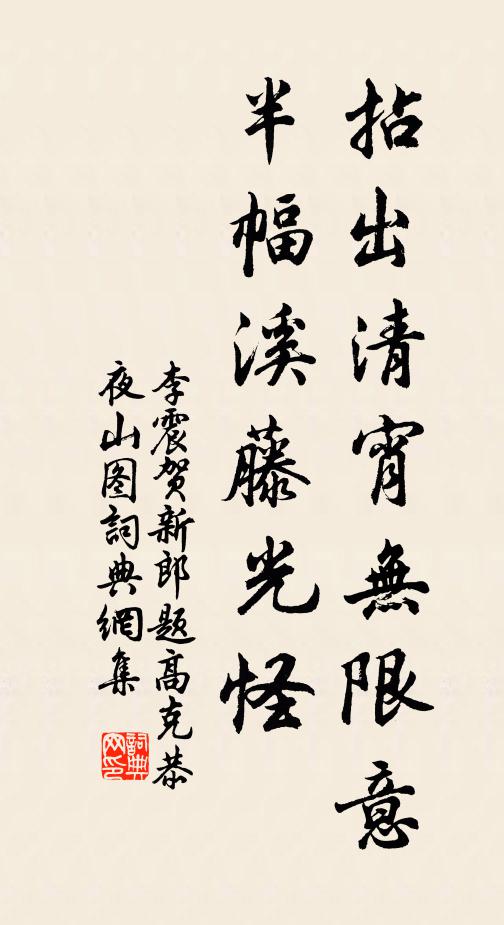 拈出清宵無限意
半幅溪藤光怪
李震贺新郎题高克恭
夜山图詞典網集
詞典
网印